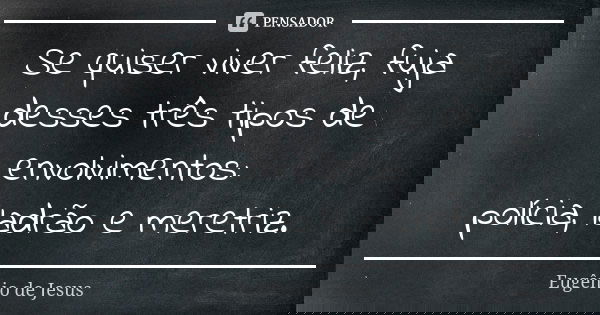 PENSADOR
Se quiser viver feliz, fuja
desses três tipos de
envolvimentos:
polícia, ladrão e meretriz.
Eugênio de Jesus